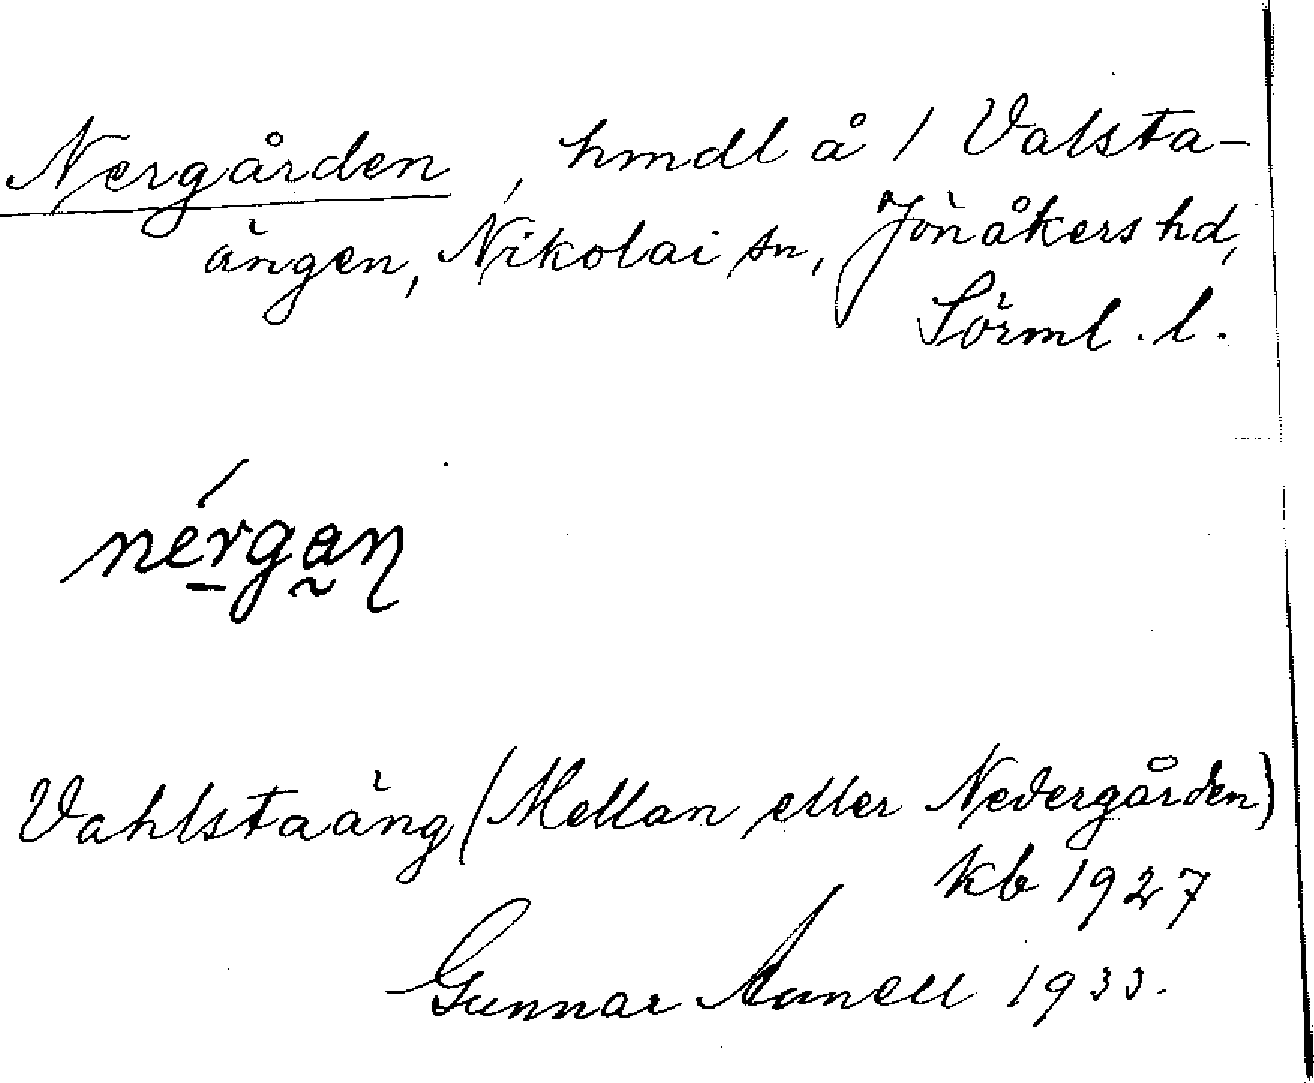 Nergården, hmdl å 1 Valsta-
ängen, Nikolai sn, Jönåkers hd,
Sörml. l.
nérgaɳ
Vahlstaäng (Mellan eller Nedergården)
kb 1927
Gunnar 1933.